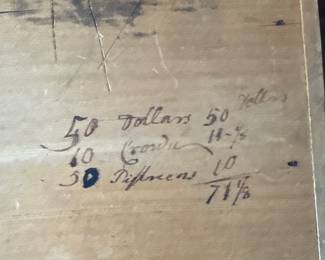 50 Dollars 50 Dollars
10 Crowns 11-⅛
50 Pistreens 10
71⅛